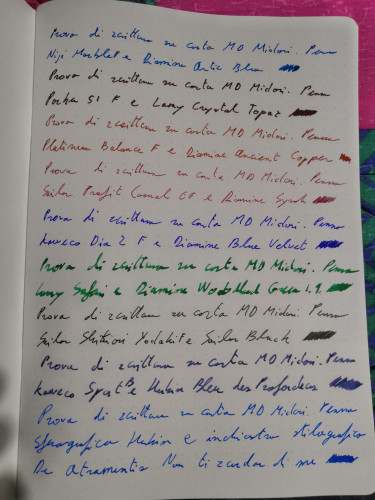 Prova di scrittura su carta MD Midori. Penna
Niji Marblet e Diamine Artic Blue
Prova di scrittura su carta MD Midori. Penna
Parker 51 F e Lamy Crystal Topaz
Prova di scrittura su carta MD Midori. Penna
Platinum Balance F e Diamine Ancient Copper
Prova di scrittura su carta MD Midori. Penna
Sailor Profit Casual GF e Diamine Syrah
Prova di scrittura su carta MD Midori. Penna
Kaweco Dia 2 F e Diamine Blue Velvet
Prova di scrittura su carta MD Midori. Penna
Lamy Safari e Diamine Woodland Green 1.9
Prova di scrittura su carta MD Midori. Penna
Sailor Shikiori Yodaki F e Sailor Black
Prova di scrittura su carta MD Midori. Penna
Kaweco Sport B e Herbin Bleu des Profondeurs
Prova di scrittura su carta MD Midori. Penna
Sferografica Herbin e inchiostro stilografico
De Atramentis Non ti scordar di me